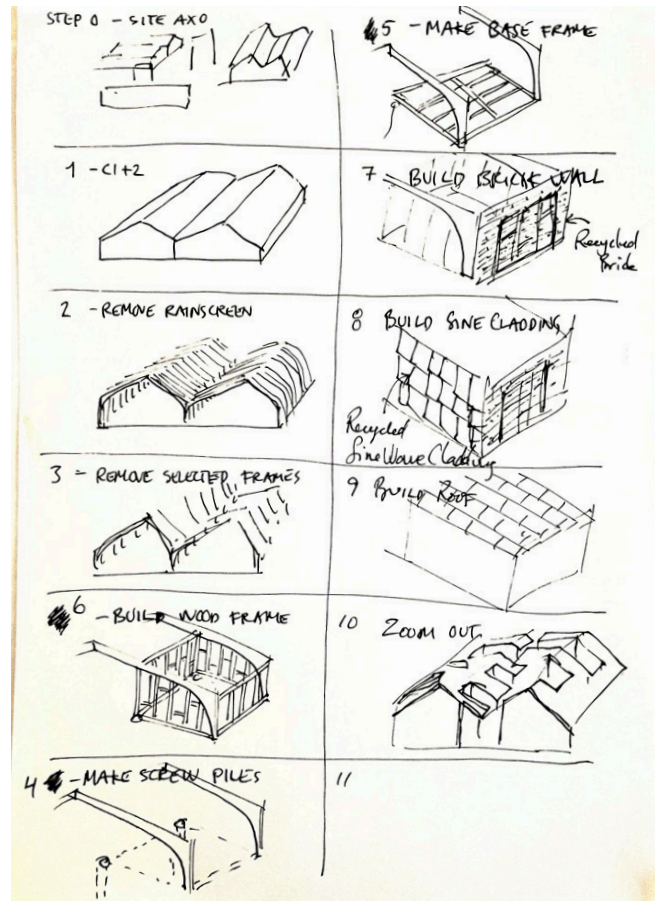 STEP 0 - SITE AXO
1 - C1+2
2 - REMOVE RAINSCREEN
3 - REMOVE SELECTED FRAMES
6 - BUILD WOOD FRAME
4 - MAKE SCREW PILES
5 - MAKE BASE FRAME
7 BUILD BRICK WALL
Recycled
Brick
8 BUILD SINE CLADDING
Recycled
Sine Wave Cladding
9 BUILD ROOF
10 ZOOM OUT
11